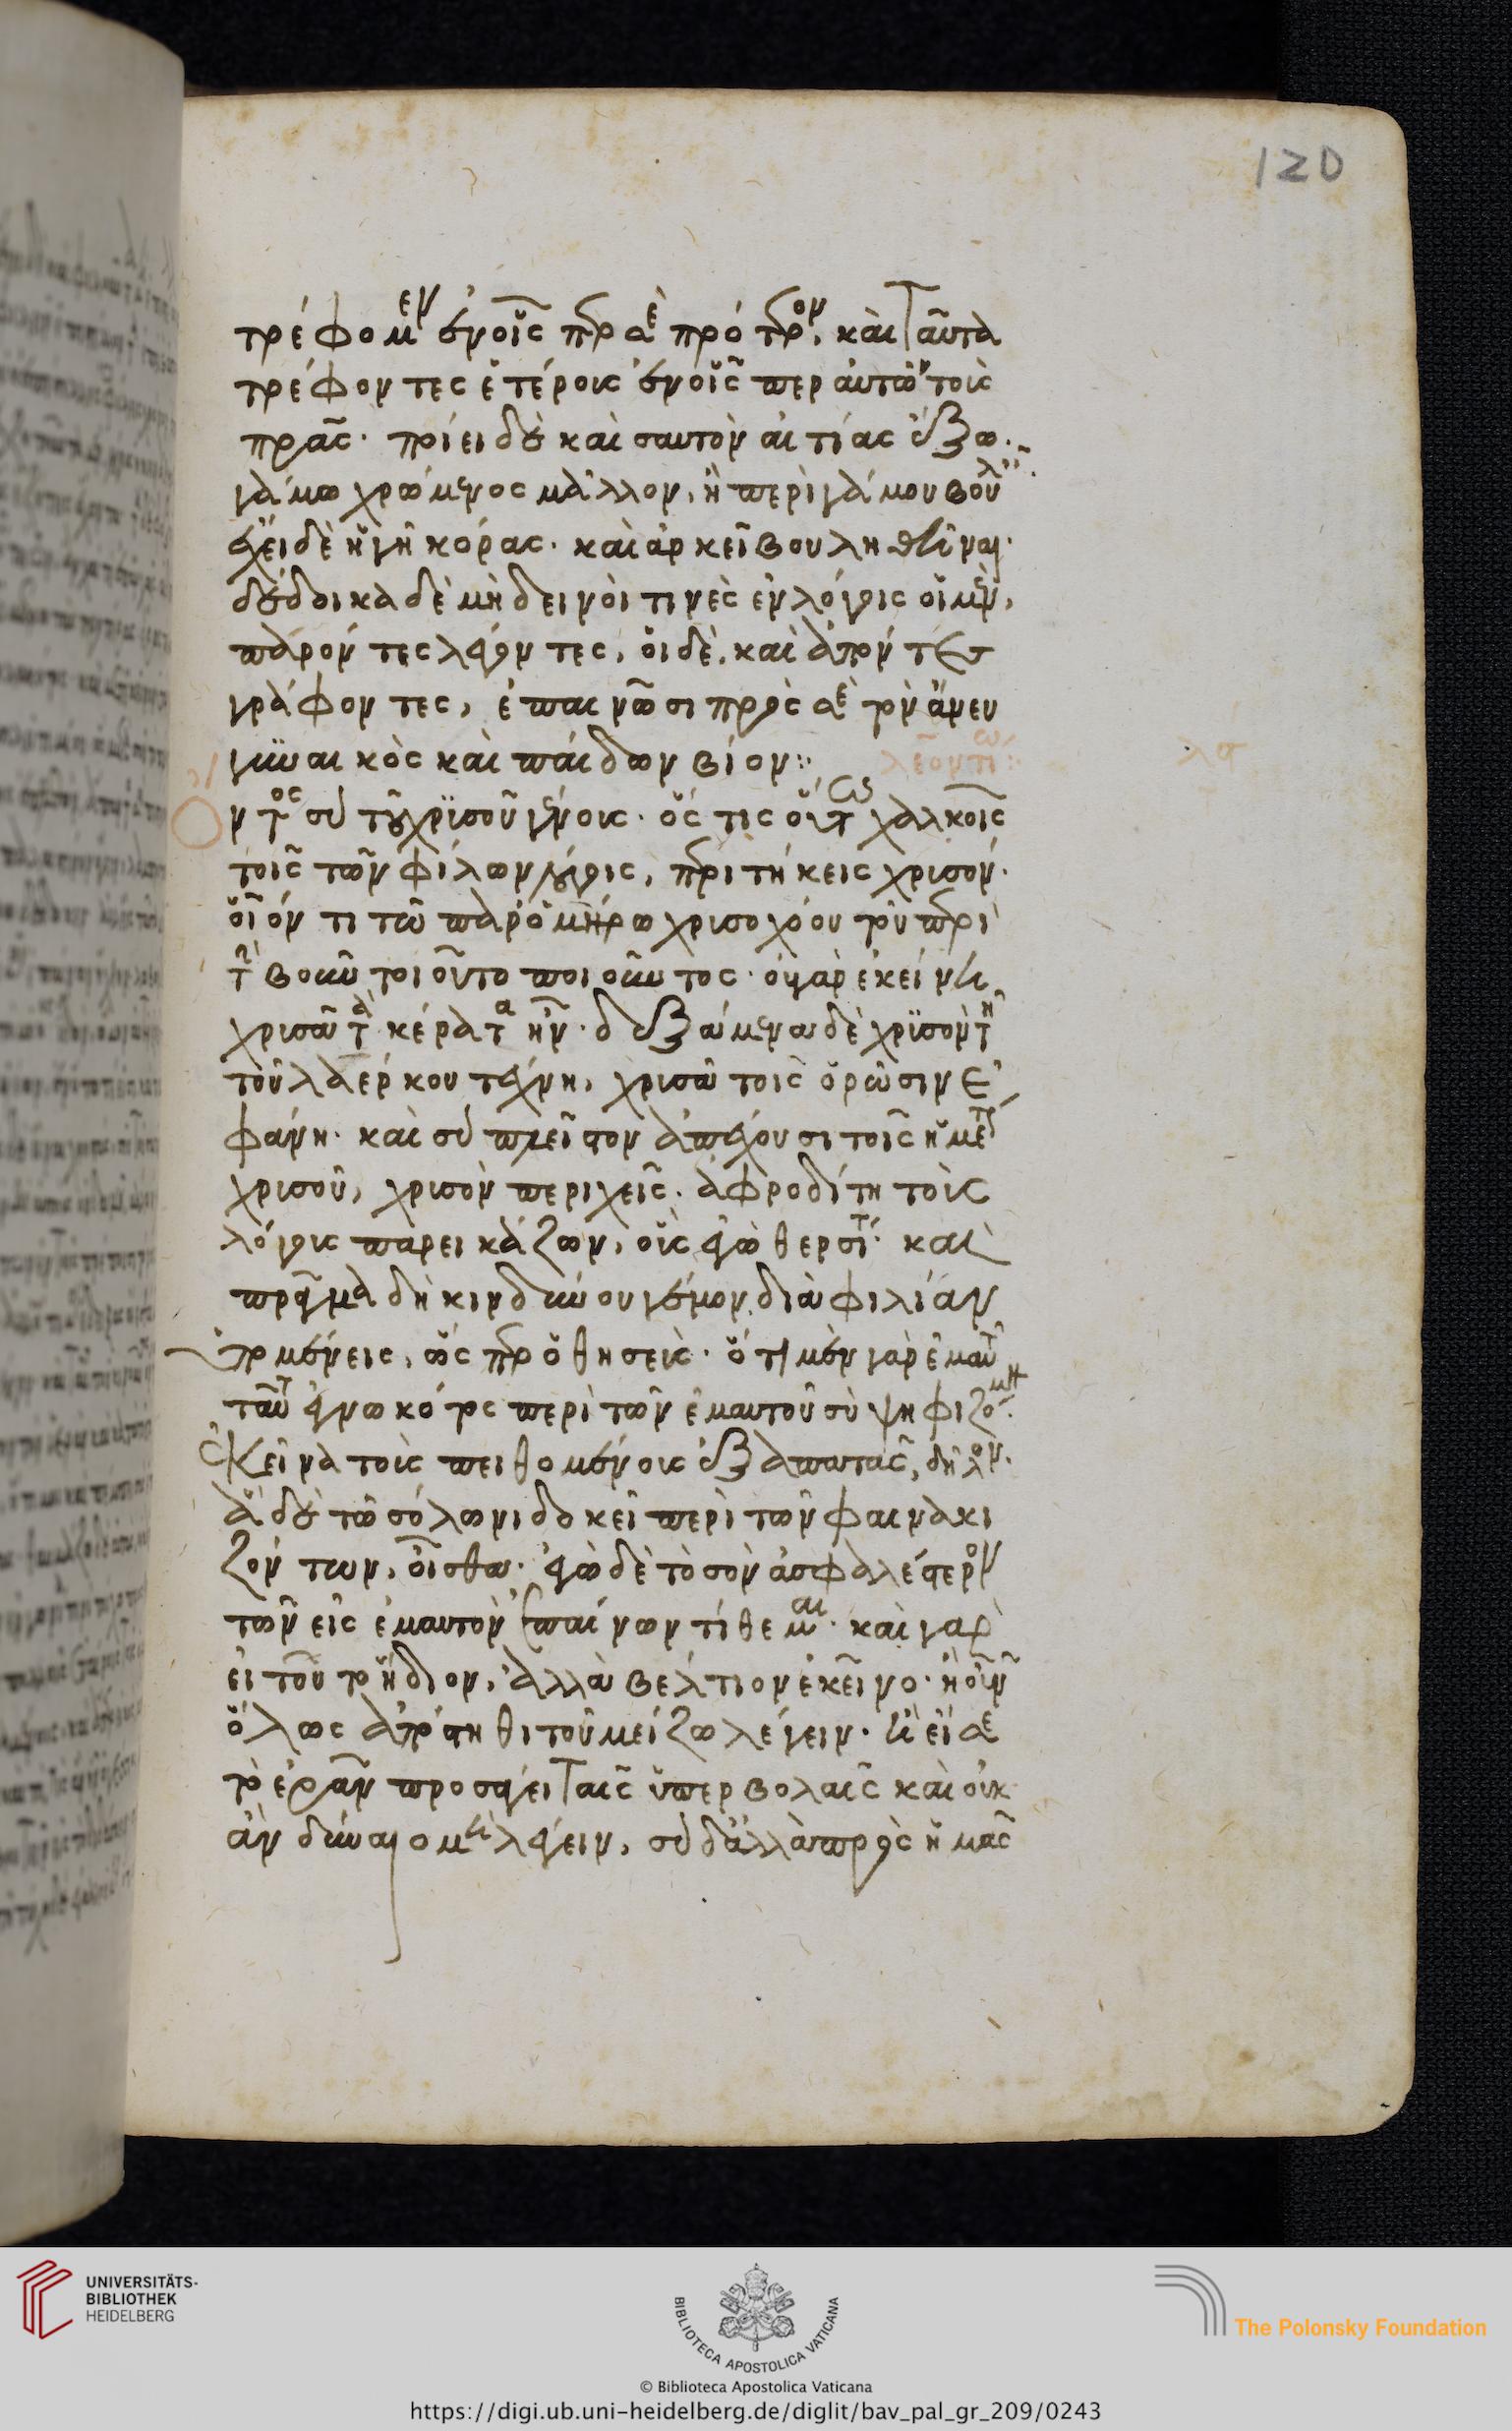 120
τρέφομεν ἐν οἷς πρᾶ πρότερον. καὶ ταῦτα
τρέφοντες ἑτέροις ἐν οἷς περ αὐτῶν τοῖς
πρᾶς. ποίει δὲ καὶ σαυτὸν αἰτίας ἔξω.
γάμω χρώμενος μᾶλλον, ἢ περὶ γάμου βουλ
ἔχει δὲ ἡ γῆ κόρας. καὶ ἀρκεῖ βουληθῆναι.
δέδοικα δὲ μὴ δεινοὶ τινὲς ἐν λόγοις οἱ μὲν,
παρόντες λέγοντες, οἱ δὲ, καὶ ἀπόντες
γράφοντες, ἐπαινῶσι πρὸς σὲ τὸν ἄνευ
γυναικὸς καὶ παίδων βίον:: λεοντίω
ντος σὺ τοῦ χρυσοῦ γένους. ὅς τις οὕτως χαλκοῖς
τοῖς τῶν φίλων λόγοις, περιτήκεις χρυσόν.
οἷόν τι τῶ παρ' ὁμήρω χρυσοχόου τοῦ περὶ
τὴν βοῦν τοιοῦτο ποιοῦντος. οὐ γὰρ ἐκείνη
χρυσᾶ τὰ κέρατα ἦν. δεξαμένω δὲ χρυσὸν τῆ
τοῦ λαέρκου τέχνη, χρυσᾶ τοῖς ὁρῶσιν ἐ
φάνη. καὶ σὺ πλεῖστον ἀπέχουσι τοῖς ἡμετ
χρυσοῦ, χρυσὸν περιχεῖς. ἀφροδίτη τοὺς
λόγους παρεικάζων, οὓς ἐγὼ θερσίτ. καὶ
πρᾶγμα δὴ κινδύνου γέμον διὰ φιλίαν
ὑπομένεις, ὡς προθήσεις. ὅτι μὲν γὰρ ἐμαυτ
ταῦτ ἐγνωκότος περὶ τῶν ἐμαυτοῦ σὺ ψηφιζόμ
ἐκεῖνα τοὺς πειθομένους ἐξαπατᾶς, δῆλον.
ἃ δὲ τῶ σόλωνι δοκεῖ περὶ τῶν φαινακι
ζόντων, οἶσθα. ἐγὼ δὲ τὸ σὸν ἀσφαλέστερον
τῶν εἰς ἐμαυτὸν ἐπαίνων τίθεμαι. καὶ γὰρ
εἰ τοῦτο ἥδιον, ἀλλὰ βέλτιον ἐκεῖνο. ἢ οὖν
ὅλως ἀπόστηθι τοῦ μείζω λέγειν. ἢ εἴ σε
τὸ ἐρᾶν προσάγει ταῖς ὑπερβολαῖς καὶ οὐκ
ἂν δύναιο μὴ λέγειν, σὺ δ' ἀλλὰ πρὸς ἡμᾶς
UNIVERSITÄTS-
BIBLIOTHEK
HEIDELBERG
BIBLIOTECA APOSTOLICA VATICANA
The Polonsky Foundation
© Biblioteca Apostolica Vaticana
https://digi.ub.uni-heidelberg.de/diglit/bav_pal_gr_209/0243